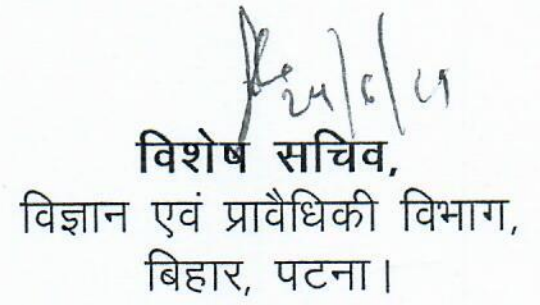 24/6/19
विशेष सचिव,
विज्ञान एवं प्रावैधिकी विभाग,
बिहार, पटना।